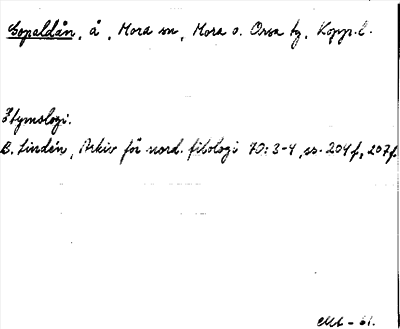 Gopaldån, å, Mora sn, Mora o. Orsa tg, Kopp. l.
Etymologi.
B. Lindén, Arkiv för nord. filologi 70:3-4, ss. 204f, 207f.
- 61.